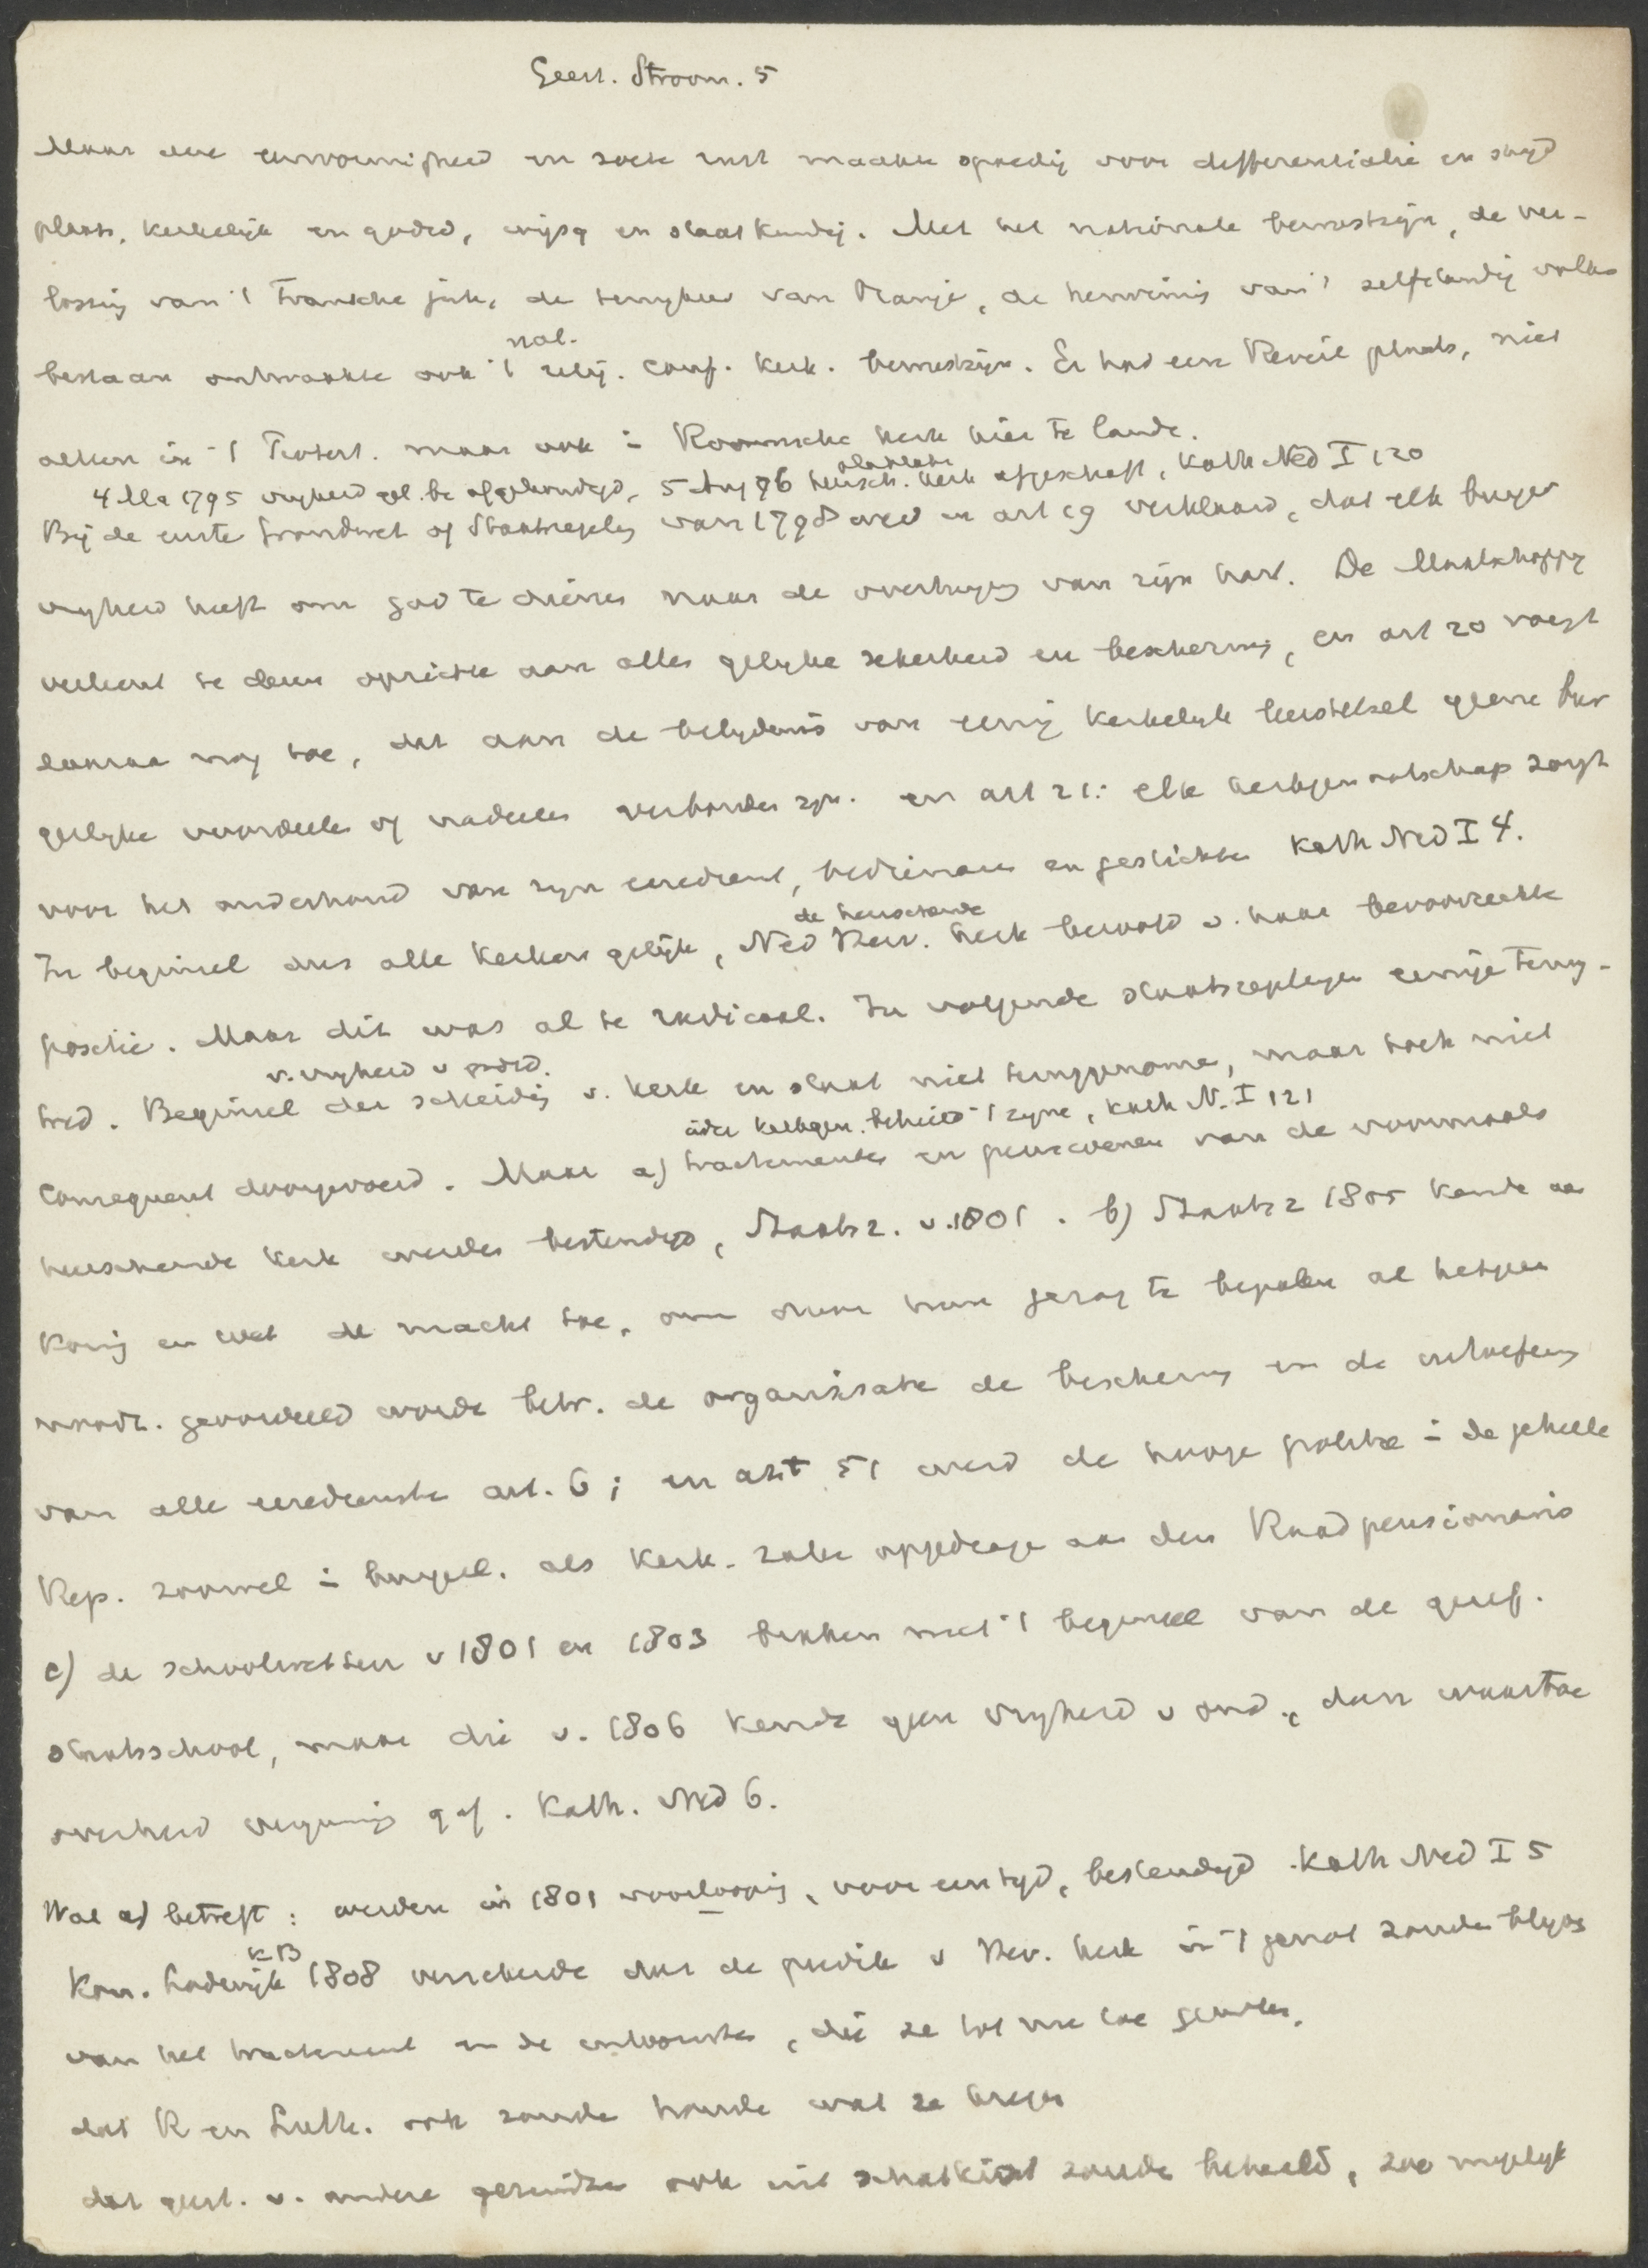 Geest. Stroom. 5
Maar deze eenvormigheid en zoete rust maakte spoedig voor differentiatie en strijd
plaats, kerkelijk en godsd, wijsg en staatkundig. Met het nationale bewustzijn, de ver-
lossing van 't Fransche juk, de terugkeer van Oranje, de herwinning van 't zelfstandig volks
bestaan ontwaakte ook 't relig. conf. kerk. bewustzijn. Er had een Reveil plaats, niet
nat.
alleen in 't Protest. maar ook in Roomsche kerk hier te lande.
4 Mei 1795 vrijheid gel. be afgekondigd, 5 Aug 96 heersch. kerk afgeschaft, Kath Ned I 120
Bij de eerste Grondwet of Staatsregeling van 1798 werd in art 19 verklaard, dat elk burger
vrijheid heeft om God te dienen naar de overtuiging van zijn hart. De Maatschappij
verleent te dezen opzichte aan allen gelijke zekerheid en bescherming, en art 20 voegt
daaraan nog toe, dat aan de belijdenis van eenig kerkelijk leerstelsel geene bur
gerlijke voordeelen of nadeelen verbonden zijn. en art 21: elk kerkgenootschap zorgt
voor het onderhoud van zijn eeredienst, bedienaren en gestichten Kath Ned I 4.
de heerschende
In beginsel dus alle kerken gelijk, Ned Herv. kerk beroofd v. haar bevoorrechte
positie. Maar dit was al te radicaal. In volgende staatsregelingen eenige terug-
v. vrijheid v godsd.
tred. Beginsel der scheiding v. kerk en staat niet teruggenomen, maar toch niet
ieder kerkgen. behield 't zijne, Kath N. I 121
consequent doorgevoerd. Maar a) tractementen en pensioenen van de voormaals
heerschende kerk werden bestendigd, Staatsr. v. 1801. b) Staatsr 1805 kende aan
Koning en wet de macht toe, om onder hun gezag te bepalen al hetgeen
noodz. geoordeeld wordt betr. de organisatie de bescherming en de uitoefening
van alle eerediensten art. 6; in art 51 werd de hooge politie in de geheele
Rep. zoowel in burgerl. als kerk. zaken opgedragen aan den Raadpensionaris
c) de schoolwetten v 1801 en 1803 braken met 't beginsel van de geref.
staatsschool, maar die v. 1806 kende geen vrijheid v ond., dan waartoe
overheid vergunning gaf. Kath. Ned 6.
Wat a) betreft: werden in 1801 voorloopig, voor een tijd, bestendigd. Kath Ned I 5
KB
Kon. Lodewijk 1808 verzekerde dat de predik v Herv. kerk in 't genot zouden blijven
van het tractement en de inkomsten, die ze tot nu toe genoten,
dat R en Luth. ook zouden houden wat ze kregen
dat geest. v. andere gezindten ook uit schatkist zouden betaald, zoo mogelijk